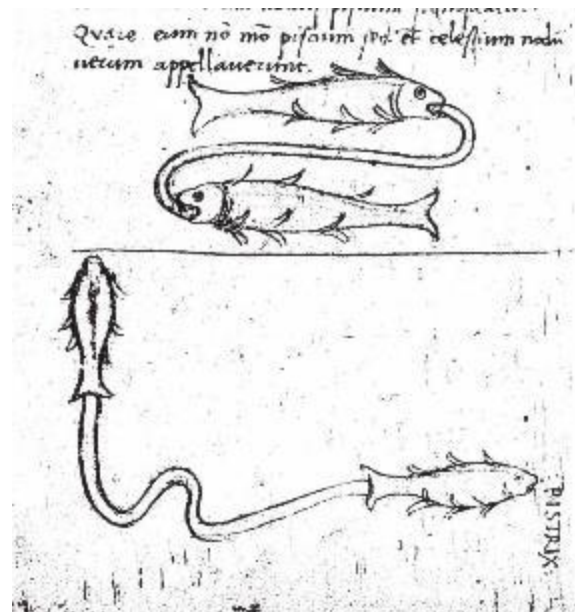 Quare eum nō mō piscium sed et celestium nodū
uerum appellauerunt.
PISTRIX